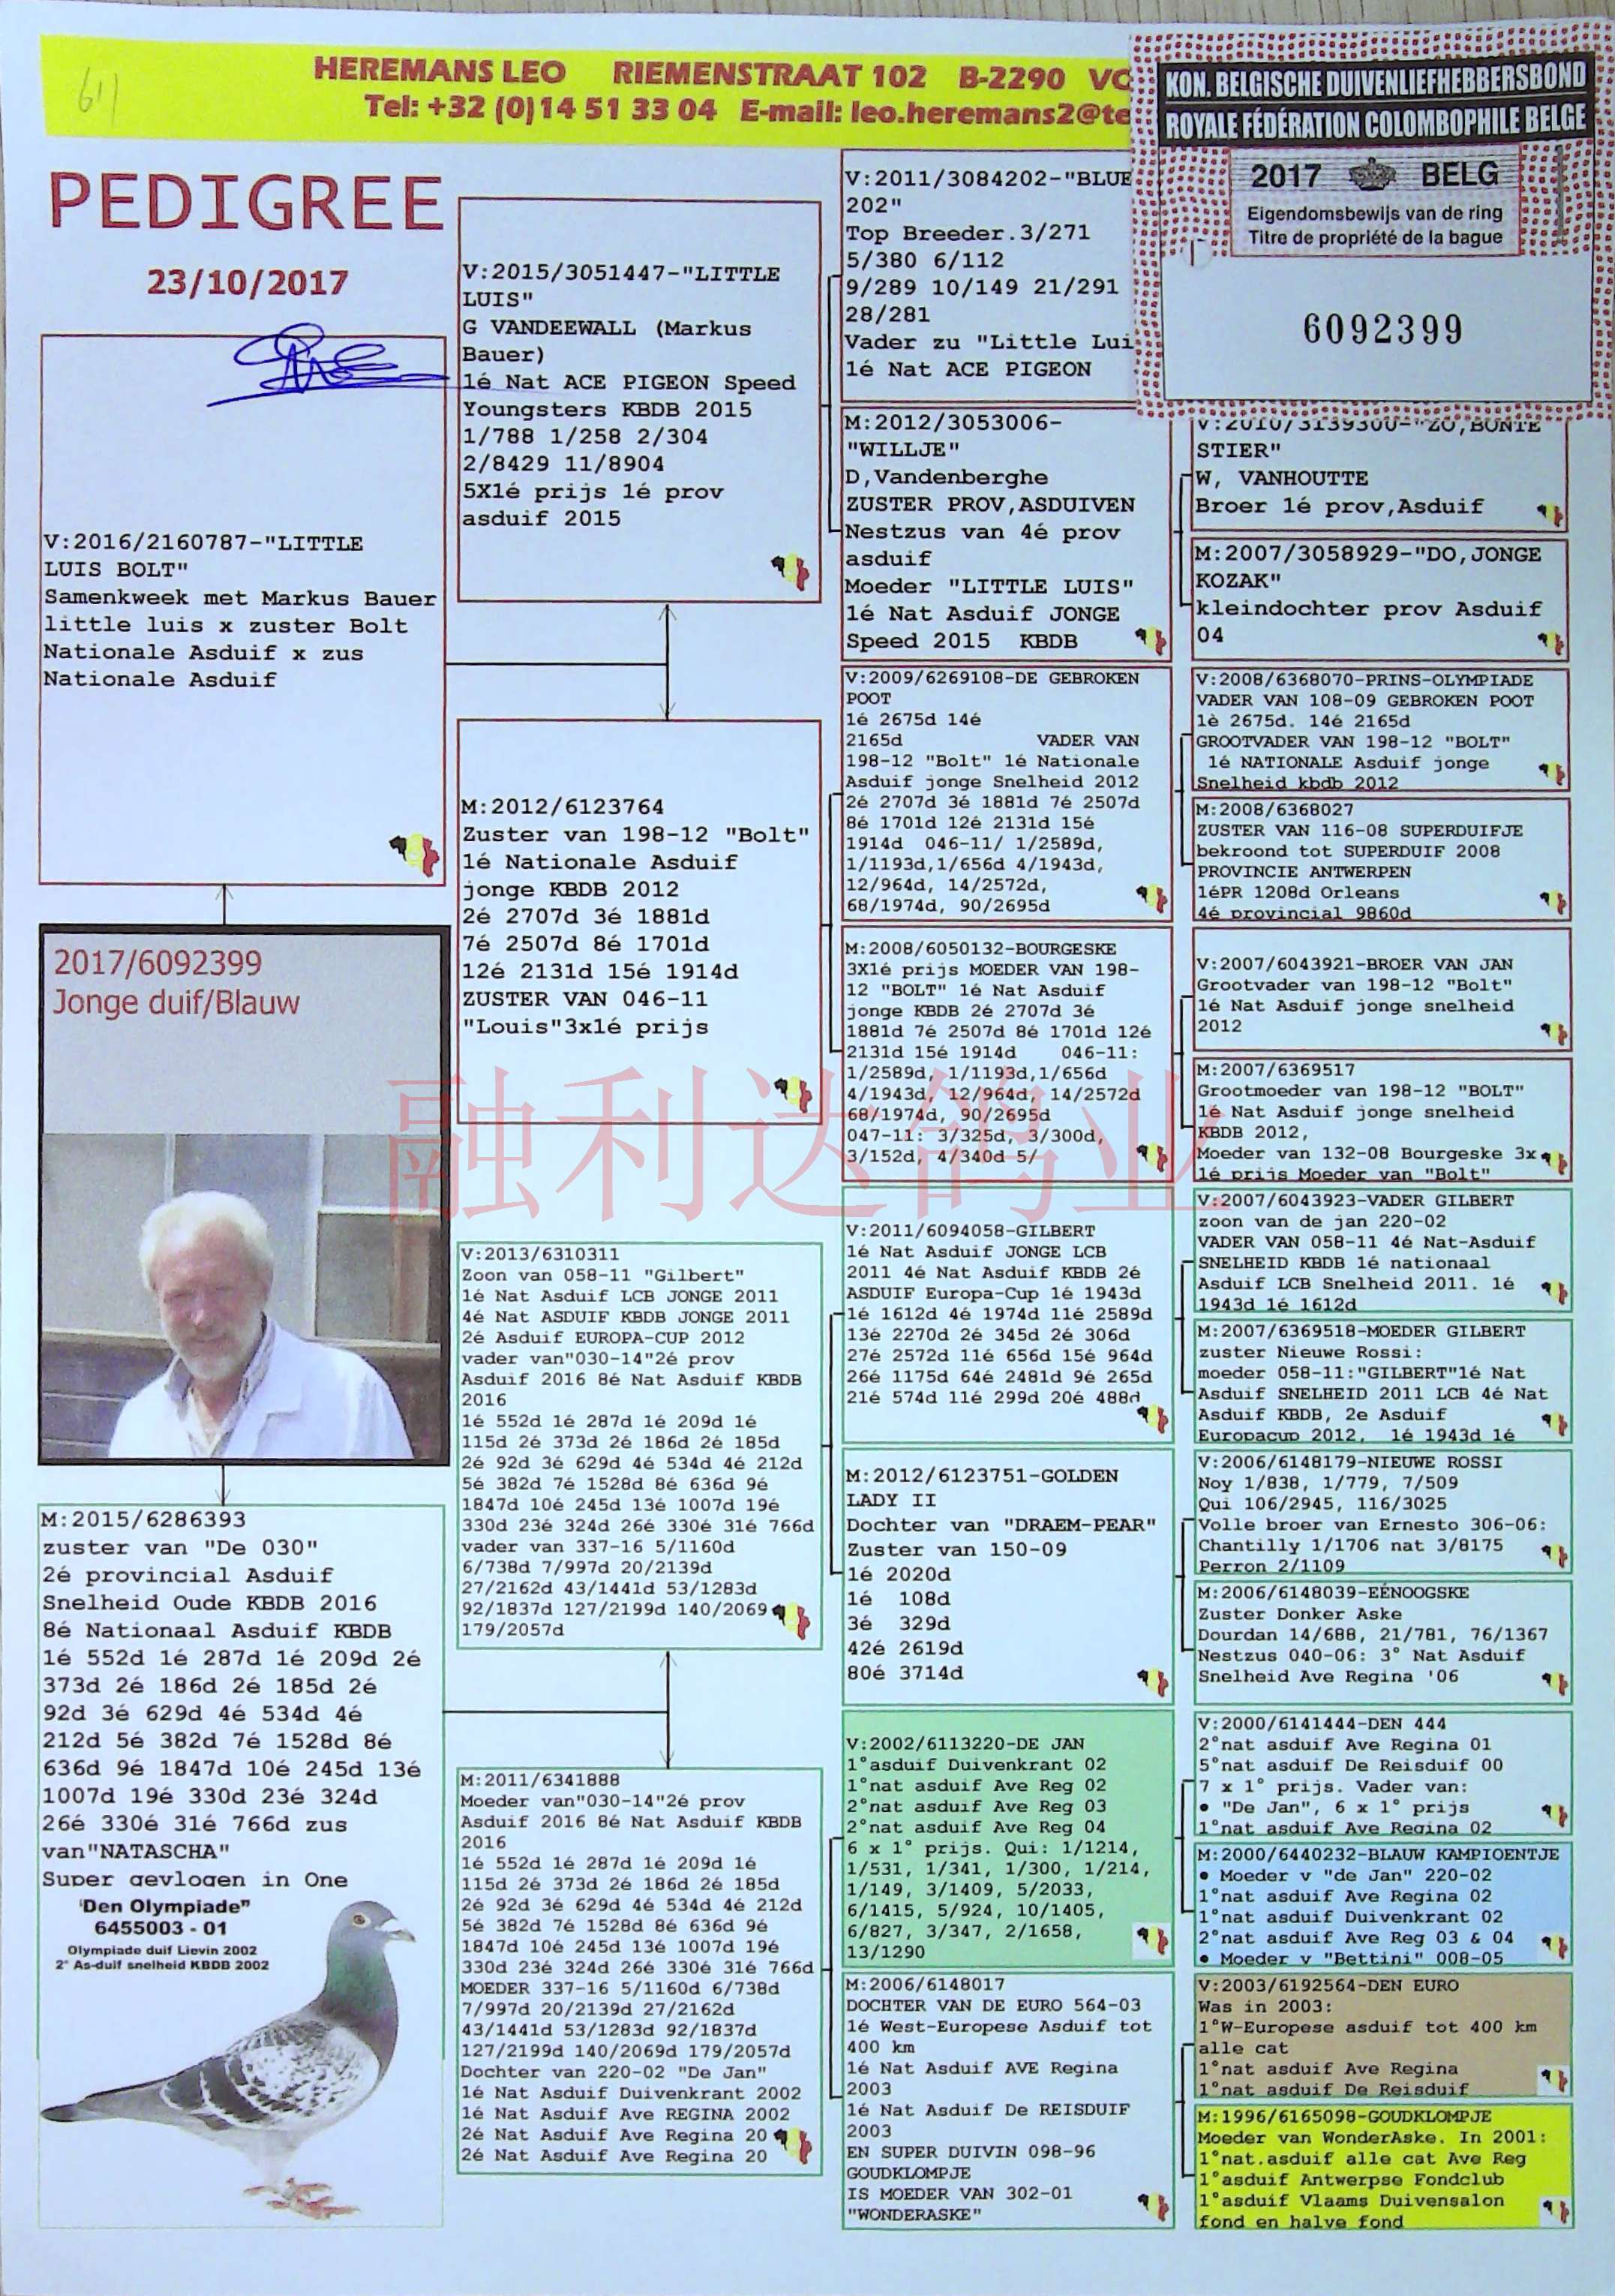 611
HEREMANS LEO RIEMENSTRAAT 102 B-2290
Tel: +32 (0)14 51 33 04 E-mail: leo.heremans2@te
KON. BELGISCHE DUIVENLIEFHEBBERSBOND
ROYALE FÉDÉRATION COLOMBOPHILE BELGE
2017 BELG
Eigendomsbewijs van de ring
Titre de propriété de la bague
6092399
PEDIGREE
23/10/2017
V:2016/2160787-"LITTLE
LUIS BOLT"
Samenkweek met Markus Bauer
little luis x zuster Bolt
Nationale Asduif x zus
Nationale Asduif
2017/6092399
Jonge duif/Blauw
M:2015/6286393
zuster van "De 030"
2é provincial Asduif
Snelheid Oude KBDB 2016
8é Nationaal Asduif KBDB
1é 552d 1é 287d 1é 209d 2é
373d 2é 186d 2é 185d 2é
92d 3é 629d 4é 534d 4é
212d 5é 382d 7é 1528d 8é
636d 9é 1847d 10é 245d 13é
1007d 19é 330d 23é 324d
26é 330é 31é 766d zus
van"NATASCHA"
Super gevlogen in One
"Den Olympiade"
6455003 - 01
Olympiade duif Lievin 2002
2° As-duif snelheid KBDB 2002
V:2015/3051447-"LITTLE
LUIS"
G VANDEEWALL (Markus
Bauer)
1é Nat ACE PIGEON Speed
Youngsters KBDB 2015
1/788 1/258 2/304
2/8429 11/8904
5X1é prijs 1é prov
asduif 2015
M:2012/6123764
Zuster van 198-12 "Bolt"
1é Nationale Asduif
jonge KBDB 2012
2é 2707d 3é 1881d
7é 2507d 8é 1701d
12é 2131d 15é 1914d
ZUSTER VAN 046-11
"Louis"3x1é prijs
V:2013/6310311
Zoon van 058-11 "Gilbert"
1é Nat Asduif LCB JONGE 2011
4é Nat ASDUIF KBDB JONGE 2011
2é Asduif EUROPA-CUP 2012
vader van"030-14"2é prov
Asduif 2016 8é Nat Asduif KBDB
2016
1é 552d 1é 287d 1é 209d 1é
115d 2é 373d 2é 186d 2é 185d
2é 92d 3é 629d 4é 534d 4é 212d
5é 382d 7é 1528d 8é 636d 9é
1847d 10é 245d 13é 1007d 19é
330d 23é 324d 26é 330é 31é 766d
vader van 337-16 5/1160d
6/738d 7/997d 20/2139d
27/2162d 43/1441d 53/1283d
92/1837d 127/2199d 140/2069
179/2057d
M:2011/6341888
Moeder van"030-14"2é prov
Asduif 2016 8é Nat Asduif KBDB
2016
1é 552d 1é 287d 1é 209d 1é
115d 2é 373d 2é 186d 2é 185d
2é 92d 3é 629d 4é 534d 4é 212d
5é 382d 7é 1528d 8é 636d 9é
1847d 10é 245d 13é 1007d 19é
330d 23é 324d 26é 330é 31é 766d
MOEDER 337-16 5/1160d 6/738d
7/997d 20/2139d 27/2162d
43/1441d 53/1283d 92/1837d
127/2199d 140/2069d 179/2057d
Dochter van 220-02 "De Jan"
1é Nat Asduif Duivenkrant 2002
1é Nat Asduif Ave REGINA 2002
2é Nat Asduif Ave Regina 20
2é Nat Asduif Ave Regina 20
V:2011/3084202-"BLUE
202"
Top Breeder.3/271
5/380 6/112
9/289 10/149 21/291
28/281
Vader zu "Little Lui
1é Nat ACE PIGEON
M:2012/3053006-
"WILLJE"
D,Vandenberghe
ZUSTER PROV,ASDUIVEN
Nestzus van 4é prov
asduif
Moeder "LITTLE LUIS"
1é Nat Asduif JONGE
Speed 2015 KBDB
V:2009/6269108-DE GEBROKEN
POOT
1é 2675d 14é
2165d VADER VAN
198-12 "Bolt" 1é Nationale
Asduif jonge Snelheid 2012
2é 2707d 3é 1881d 7é 2507d
8é 1701d 12é 2131d 15é
1914d 046-11/ 1/2589d,
1/1193d,1/656d 4/1943d,
12/964d, 14/2572d,
68/1974d, 90/2695d
M:2008/6050132-BOURGESKE
3X1é prijs MOEDER VAN 198-
12 "BOLT" 1é Nat Asduif
jonge KBDB 2é 2707d 3é
1881d 7é 2507d 8é 1701d 12é
2131d 15é 1914d 046-11:
1/2589d, 1/1193d,1/656d
4/1943d, 12/964d, 14/2572d
68/1974d, 90/2695d
047-11: 3/325d, 3/300d,
3/152d, 4/340d 5/
V:2011/6094058-GILBERT
1é Nat Asduif JONGE LCB
2011 4é Nat Asduif KBDB 2é
ASDUIF Europa-Cup 1é 1943d
1é 1612d 4é 1974d 11é 2589d
13é 2270d 2é 345d 2é 306d
27é 2572d 11é 656d 15é 964d
26é 1175d 64é 2481d 9é 265d
21é 574d 11é 299d 20é 488d
M:2012/6123751-GOLDEN
LADY II
Dochter van "DRAEM-PEAR"
Zuster van 150-09
1é 2020d
1é 108d
3é 329d
42é 2619d
80é 3714d
V:2002/6113220-DE JAN
1°asduif Duivenkrant 02
1°nat asduif Ave Reg 02
2°nat asduif Ave Reg 03
2°nat asduif Ave Reg 04
6 x 1° prijs. Qui: 1/1214,
1/531, 1/341, 1/300, 1/214,
1/149, 3/1409, 5/2033,
6/1415, 5/924, 10/1405,
6/827, 3/347, 2/1658,
13/1290
M:2006/6148017
DOCHTER VAN DE EURO 564-03
1é West-Europese Asduif tot
400 km
1é Nat Asduif AVE Regina
2003
1é Nat Asduif De REISDUIF
2003
EN SUPER DUIVIN 098-96
GOUDKLOMPJE
IS MOEDER VAN 302-01
"WONDERASKE"
V:2010/3139300-"ZO,BONTE
STIER"
W, VANHOUTTE
Broer 1é prov,Asduif
M:2007/3058929-"DO,JONGE
KOZAK"
kleindochter prov Asduif
04
V:2008/6368070-PRINS-OLYMPIADE
VADER VAN 108-09 GEBROKEN POOT
1è 2675d. 14é 2165d
GROOTVADER VAN 198-12 "BOLT"
1é NATIONALE Asduif jonge
Snelheid kbdb 2012
M:2008/6368027
ZUSTER VAN 116-08 SUPERDUIFJE
bekroond tot SUPERDUIF 2008
PROVINCIE ANTWERPEN
1éPR 1208d Orleans
4é provincial 9860d
V:2007/6043921-BROER VAN JAN
Grootvader van 198-12 "Bolt"
1é Nat Asduif jonge snelheid
2012
M:2007/6369517
Grootmoeder van 198-12 "BOLT"
1é Nat Asduif jonge snelheid
KBDB 2012,
Moeder van 132-08 Bourgeske 3x
1é prijs Moeder van "Bolt"
V:2007/6043923-VADER GILBERT
zoon van de jan 220-02
VADER VAN 058-11 4é Nat-Asduif
SNELHEID KBDB 1é nationaal
Asduif LCB Snelheid 2011. 1é
1943d 1é 1612d
M:2007/6369518-MOEDER GILBERT
zuster Nieuwe Rossi:
moeder 058-11:"GILBERT"1é Nat
Asduif SNELHEID 2011 LCB 4é Nat
Asduif KBDB, 2e Asduif
Europacup 2012, 1é 1943d 1é
V:2006/6148179-NIEUWE ROSSI
Noy 1/838, 1/779, 7/509
Qui 106/2945, 116/3025
Volle broer van Ernesto 306-06:
Chantilly 1/1706 nat 3/8175
Perron 2/1109
M:2006/6148039-EÉNOOGSKE
Zuster Donker Aske
Dourdan 14/688, 21/781, 76/1367
Nestzus 040-06: 3° Nat Asduif
Snelheid Ave Regina '06
V:2000/6141444-DEN 444
2°nat asduif Ave Regina 01
5°nat asduif De Reisduif 00
7 x 1° prijs. Vader van:
• "De Jan", 6 x 1° prijs
1°nat asduif Ave Regina 02
M:2000/6440232-BLAUW KAMPIOENTJE
• Moeder v "de Jan" 220-02
1°nat asduif Ave Regina 02
1°nat asduif Duivenkrant 02
2°nat asduif Ave Reg 03 & 04
• Moeder v "Bettini" 008-05
V:2003/6192564-DEN EURO
Was in 2003:
1°W-Europese asduif tot 400 km
alle cat
1°nat asduif Ave Regina
1°nat asduif De Reisduif
M:1996/6165098-GOUDKLOMPJE
Moeder van WonderAske. In 2001:
1°nat.asduif alle cat Ave Reg
1°asduif Antwerpse Fondclub
1°asduif Vlaams Duivensalon
fond en halve fond
融利达鸽业